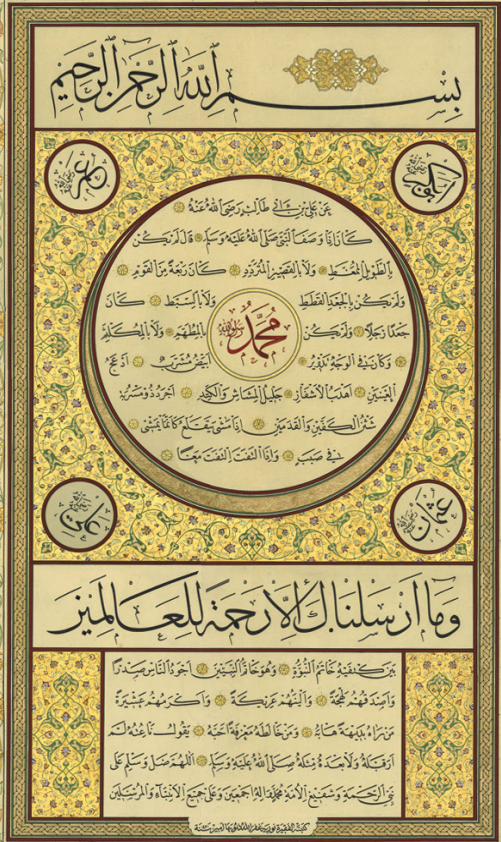 بسم الله الرحمن الرحيم
ابو بكر
عمر
عن علي بن ابي طالب رضي الله عنه
كان اذا وصف النبي صلى الله عليه وسلم قال لم يكن
بالطويل الممغط ولا بالقصير المتردد كان ربعة من القوم
ولم يكن بالجعد القطط ولا بالسبط كان
جعدا رجلا ولم يكن بالمطهم ولا بالمكلثم
محمد
وكان في الوجه تدوير ابيض مشرب ادعج
العينين اهدب الاشفار جليل المشاش والكتد اجرد ذو مسربة
شثن الكفين والقدمين اذا مشى يتقلع كانما يمشي
في صبب واذا التفت التفت معا
عثمان
علي
وما ارسلناك الا رحمة للعالمين
بين كتفيه خاتم النبوة وهو خاتم النبيين اجود الناس صدرا
واصدقهم لهجة والينهم عريكة واكرمهم عشيرة
من رآه بديهة هابه ومن خالطه معرفة احبه يقول ناعته لم
ار قبله ولا بعده مثله صلى الله عليه وسلم اللهم صل وسلم على
نبي الرحمة وشفيع الامة محمد وآله اجمعين وعلى جميع الانبياء والمرسلين
كتبه الفقير